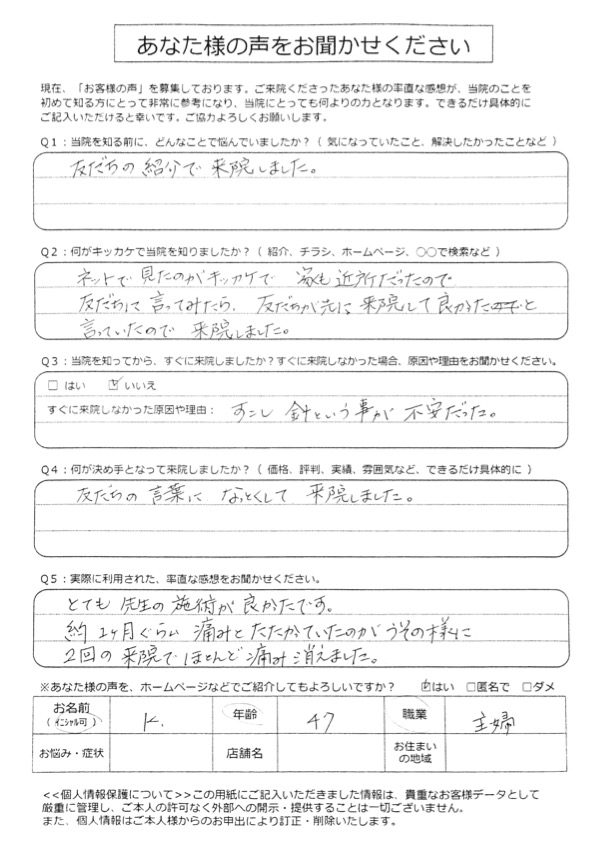 あなた様の声をお聞かせください
現在、「お客様の声」を募集しております。ご来院くださったあなた様の率直な感想が、当院のことを
初めて知る方にとって非常に参考になり、当院にとっても何よりの力となります。できるだけ具体的に
ご記入いただけると幸いです。ご協力よろしくお願いします。
Q1：当院を知る前に、どんなことで悩んでいましたか？（ 気になっていたこと、解決したかったことなど ）
友だちの紹介で来院しました。
Q2：何がキッカケで当院を知りましたか？（ 紹介、チラシ、ホームページ、○○で検索など ）
ネットで見たのがキッカケで 家も近所だったので
友だちに言ってみたら、友だちが先に来院して良かたと
言っていたので来院しました。
Q3：当院を知ってから、すぐに来院しましたか？すぐに来院しなかった場合、原因や理由をお聞かせください。
□ はい ☑ いいえ
すぐに来院しなかった原因や理由： すこし針という事が不安だった。
Q4：何が決め手となって来院しましたか？（ 価格、評判、実績、雰囲気など、できるだけ具体的に ）
友だちの言葉になっとくして来院しました。
Q5：実際に利用された、率直な感想をお聞かせください。
とても先生の施術が良かたです。
約1ヶ月ぐらい痛みとたたかていたのがうその様に
2回の来院でほとんど痛み消えました。
※あなた様の声を、ホームページなどでご紹介してもよろしいですか？ ☑はい □匿名で □ダメ
お名前（ｲﾆｼｬﾙ可） K. 年齢 47 職業 主婦
お悩み・症状 店舗名 お住まいの地域
<<個人情報保護について>>この用紙にご記入いただきました情報は、貴重なお客様データとして
厳重に管理し、ご本人の許可なく外部への開示・提供することは一切ございません。
また、個人情報はご本人様からのお申出により訂正・削除いたします。